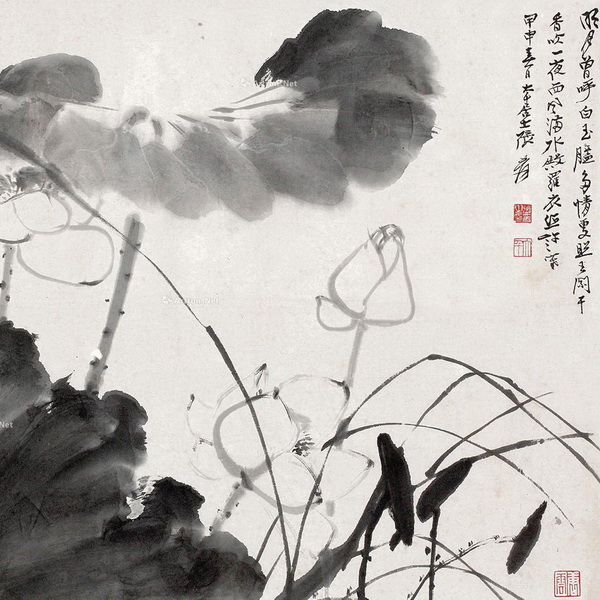 明月曾呼白玉盤多情更照玉闌干
香吹一夜西風滿水殿羅衣許寒
甲申大千居士張爰